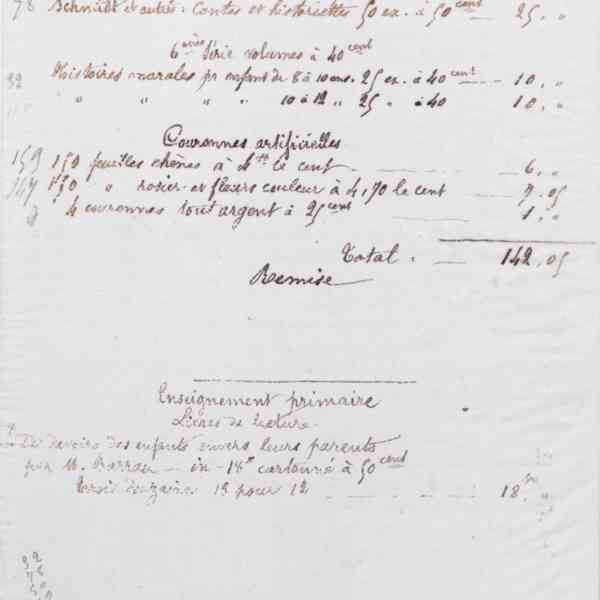 78 Schmidt et autres. Contes et historiettes 50 ex. à 50 cent 25. "
6ème Série volumes à 40 cent
32 Histoires morales pr enfant de 8 à 10 ans. 25 ex. à 40 cent 10. "
" " " " 10 à 12 " 25 " à 40 10. "
Couronnes artificielles
159 150 feuilles chênes à 4 fr le cent 6. "
147 150 " rosier et fleurs couleur à 4,70 le cent 7.05
4 couronnes tout argent à 25 cent 1. "
Total. 142.05
Remise
Enseignement primaire
Livres de Lecture
Des devoirs des enfants envers leurs parents
par M. Barrau in-18° cartonné à 50 cent
trois douzaine 13 pour 12 18. "